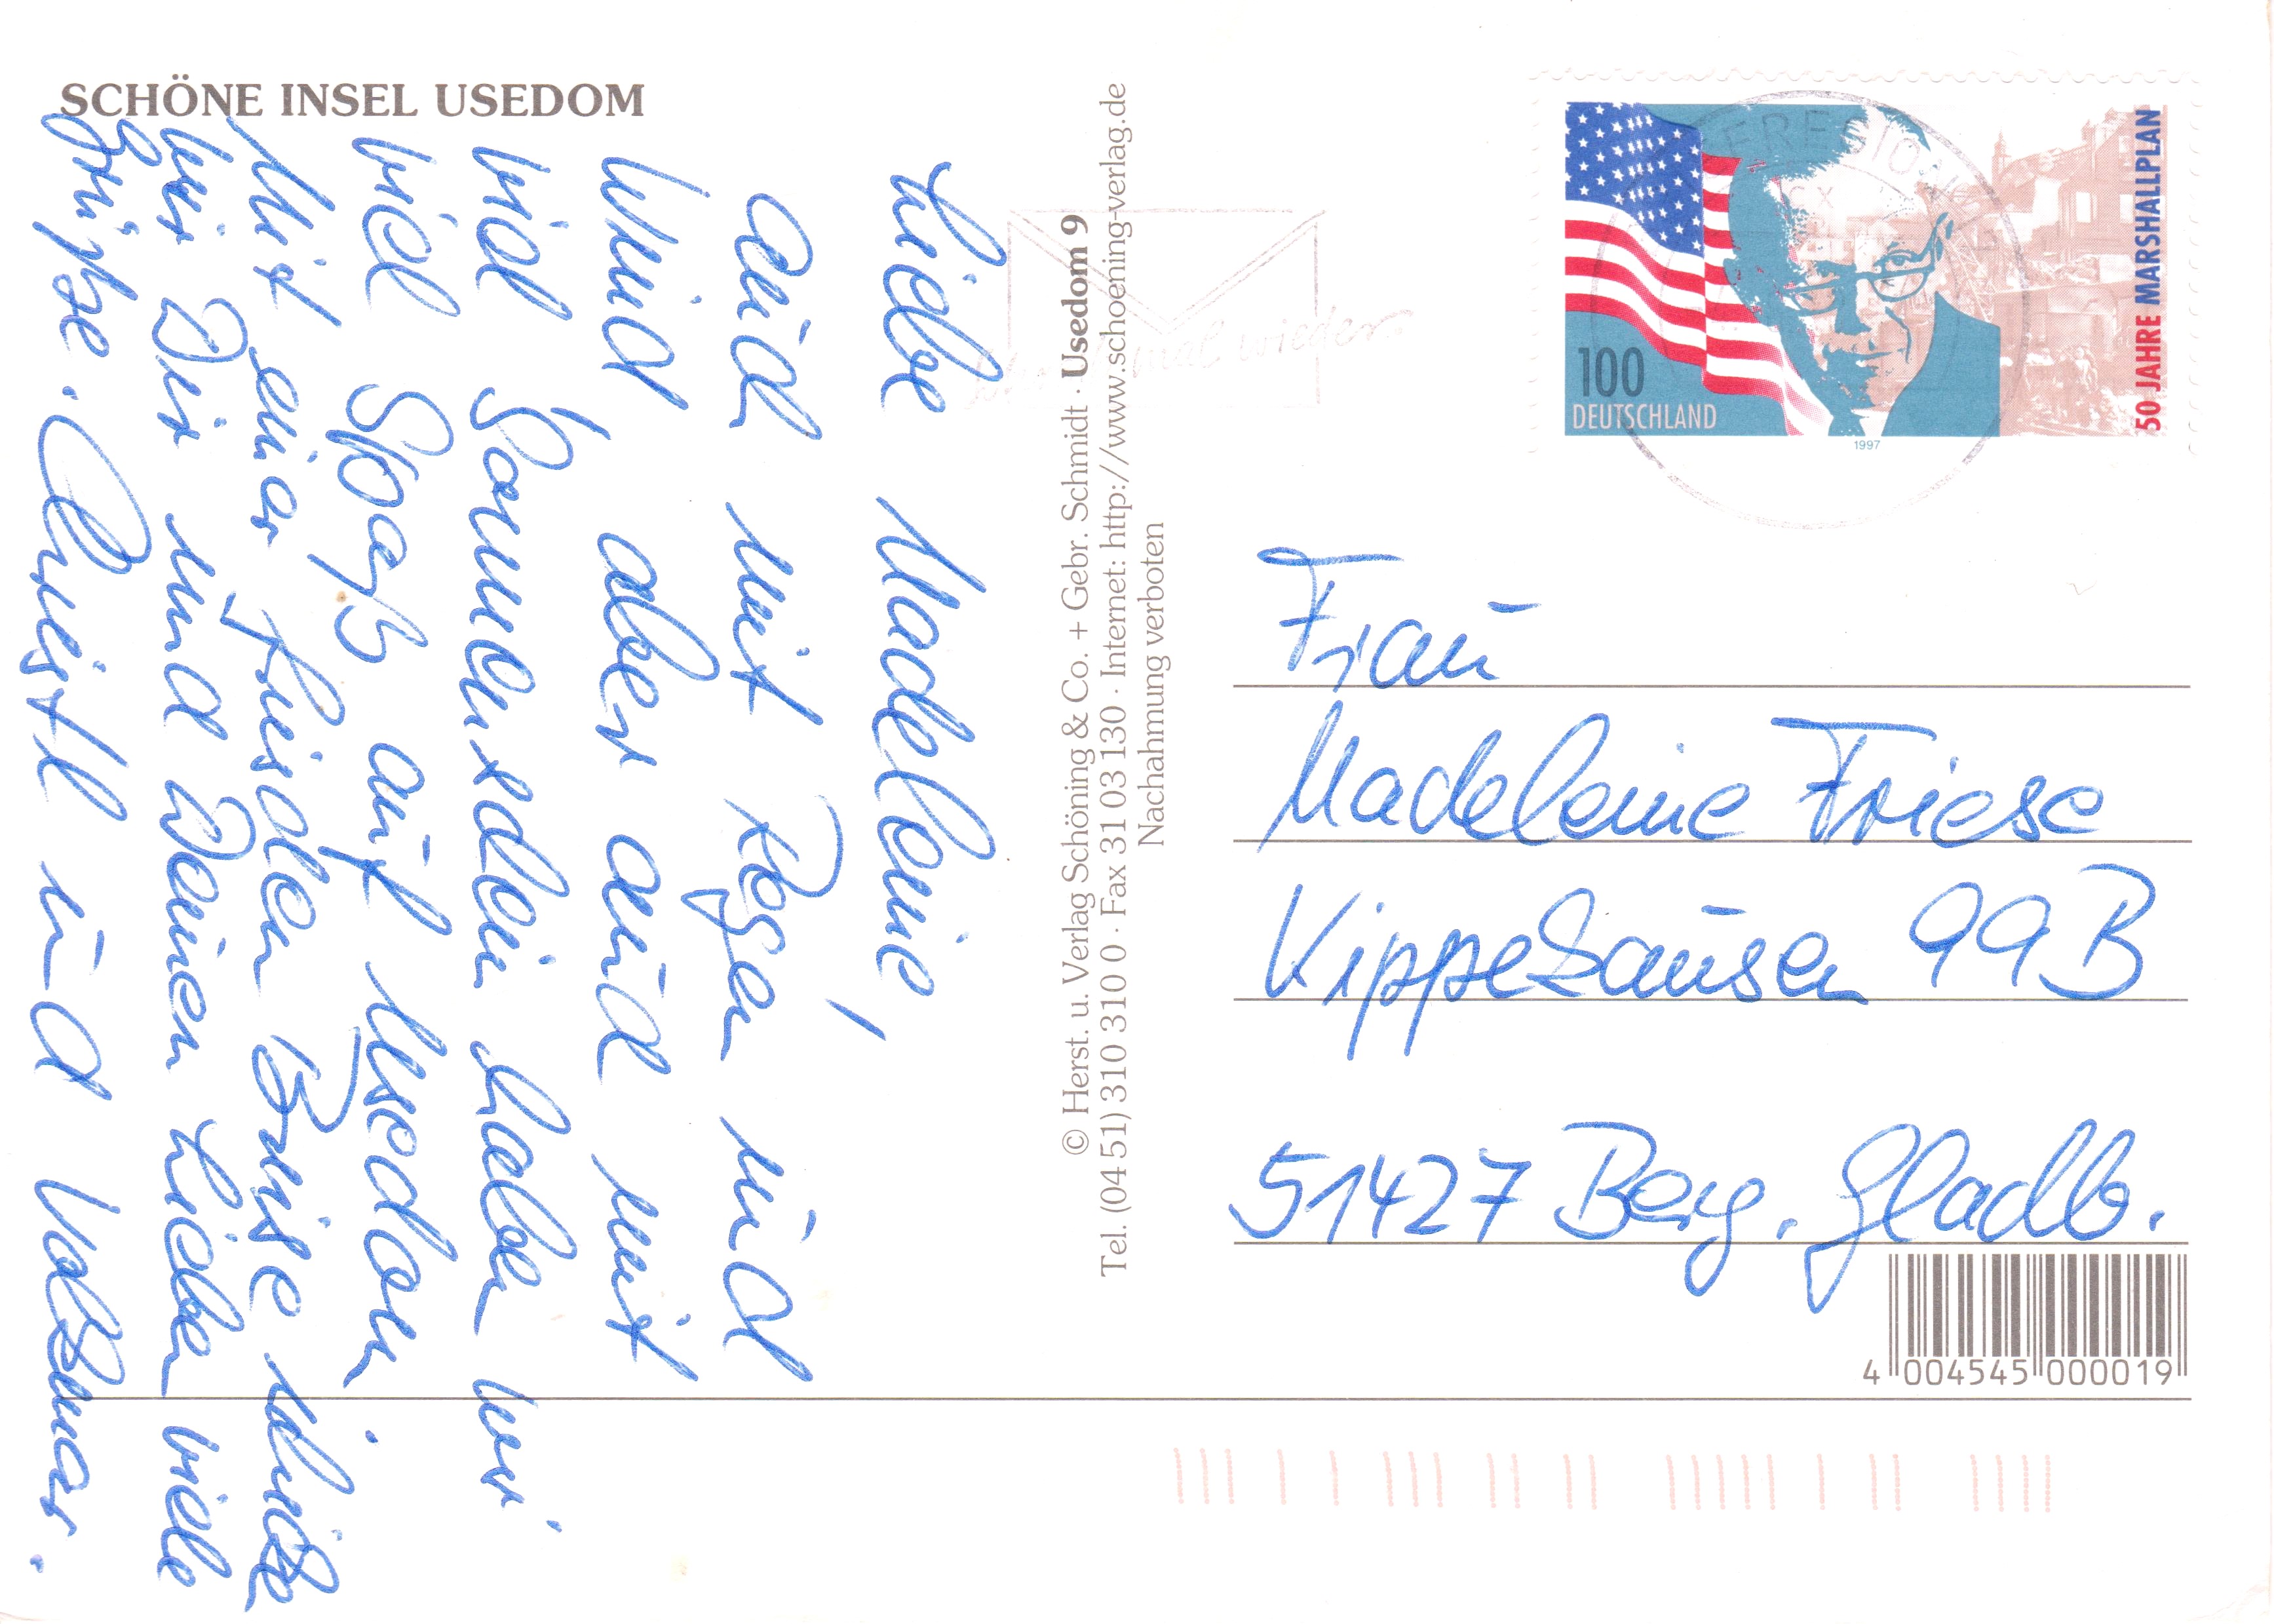 SCHÖNE INSEL USEDOM
Liebe Madeleine,
auch mit Regen und
Wind, aber auch mit
viel Sonnenschein haben wir
viel Spaß auf Usedom.
Mit einer frischen Brise schicken
wir Dir und Deinen Lieben viele
Grüße. Christl und Volkmar.
© Herst. u. Verlag Schöning & Co. + Gebr. Schmidt · Usedom 9
Tel. (04 51) 310 310 0 · Fax 31 03 130 · Internet: http://www.schoening-verlag.de
Nachahmung verboten
mal wieder
100
DEUTSCHLAND
1997
50 JAHRE MARSHALLPLAN
Frau
Madeleine Friese
Kippekausen 99B
51427 Berg. Gladb.
4 004545 000019